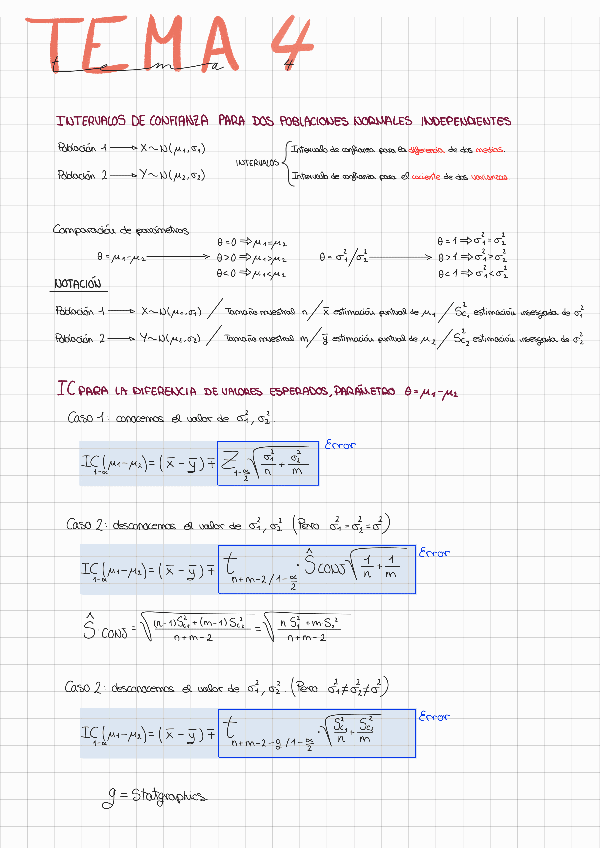 TEMA 4
tema 4
INTERVALOS DE CONFIANZA PARA DOS POBLACIONES NORMALES INDEPENDIENTES
Población 1 → X~N(μ₁,σ₁)
Población 2 → Y~N(μ₂,σ₂)
INTERVALOS
Intervalo de confianza para la diferencia de dos medias.
Intervalo de confianza para el cociente de dos varianzas
Comparación de parámetros
θ = μ₁-μ₂ →
θ=0 ⇒ μ₁=μ₂
θ>0 ⇒ μ₁>μ₂
θ<0 ⇒ μ₁<μ₂
θ = σ₁²/σ₂² →
θ=1 ⇒ σ₁²=σ₂²
θ>1 ⇒ σ₁²>σ₂²
θ<1 ⇒ σ₁²<σ₂²
NOTACIÓN
Población 1 → X~N(μ₁,σ₁) / Tamaño muestral n / x̄ estimación puntual de μ₁ / Sc₁² estimación insesgada de σ₁²
Población 2 → Y~N(μ₂,σ₂) / Tamaño muestral m / ȳ estimación puntual de μ₂ / Sc₂² estimación insesgada de σ₂²
IC PARA LA DIFERENCIA DE VALORES ESPERADOS, PARÁMETRO θ=μ₁-μ₂
Caso 1: conocemos el valor de σ₁², σ₂².
IC₁₋α(μ₁-μ₂) = (x̄ - ȳ) ∓ Z_{1-α/2} √(σ₁²/n + σ₂²/m) Error
Caso 2: desconocemos el valor de σ₁², σ₂² (Pero σ₁²=σ₂²=σ²)
IC₁₋α(μ₁-μ₂) = (x̄ - ȳ) ∓ t_{n+m-2/1-α/2} · Ŝ CONJ √(1/n + 1/m) Error
Ŝ CONJ = √(((n-1)Sc₁²+(m-1)Sc₂²)/(n+m-2)) = √((nS₁²+mS₂²)/(n+m-2))
Caso 2: desconocemos el valor de σ₁², σ₂². (Pero σ₁²≠σ₂²≠σ²)
IC₁₋α(μ₁-μ₂) = (x̄ - ȳ) ∓ t_{n+m-2-g/1-α/2} · √(Sc₁²/n + Sc₂²/m) Error
g = Statgraphics